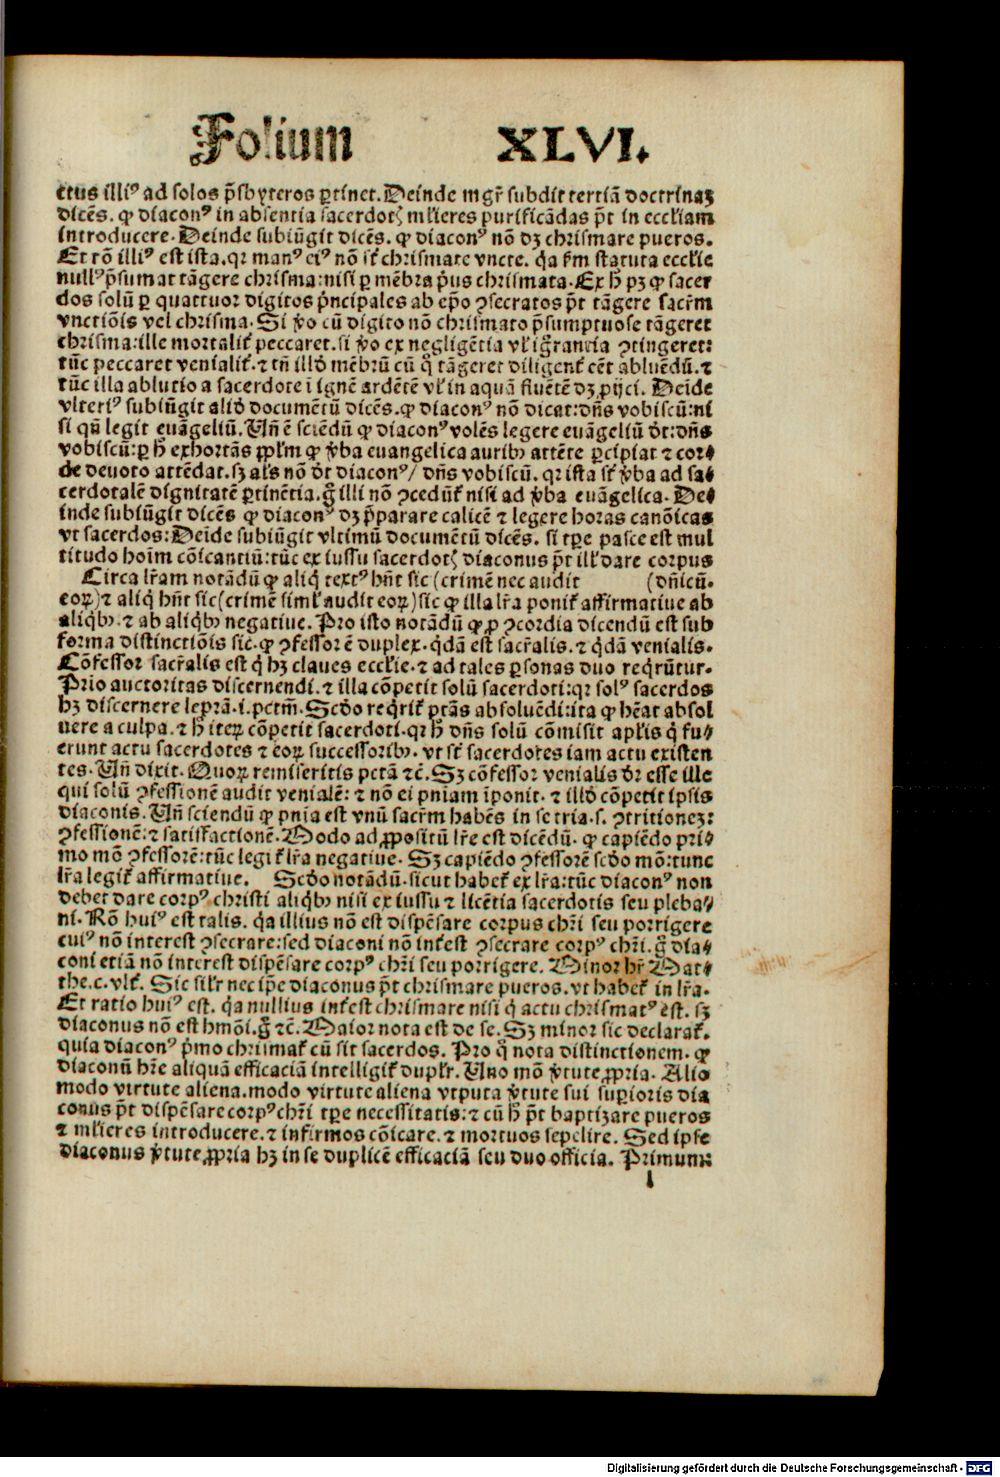 Folium XLVI.
ctus illiꝰ ad solos p̄sbyteros ꝑtinet. Deinde mgr̄ subdit tertiā doctrinaꝫ
dicēs. ꝙ diaconꝰ in absentia sacerdotꝭ mlieres purificādas pt̄ in eccl'iam
introducere. Deinde subiūgit dicēs. ꝙ diaconꝰ nō dꝫ chrismare pueros.
Et rō illiꝰ est ista. qr manꝰ eiꝰ nō sūt chrismate vncte. q̇a scd'm statuta eccl'ie
nullꝰ p̄sumat tāgere chrisma: nisi ꝑ mēbra pͥus chrismata. Ex h̄ pꝫ ꝙ sacer
dos solū ꝑ quattuor digitos pͥncipales ab ep̄o ꝯsecratos pt̄ tāgere sacr̄m
vnctiōis vel chrisma. Si v̄o cū digito nō chrismato p̄sumptuose tāgeret
chrisma: ille mortalit̄ peccaret. si v̄o ex negligētia vl' ignorantia ꝯtingeret:
tūc peccaret venialit̄. ⁊ tn̄ illḋ mēbrū cū q̊ tāgeret diligent̄ eēt abluēdū. ⁊
tūc illa ablutio a sacerdote ī ignē ardētē vl' in aquā fluētē dꝫ ꝓijci. Deīde
vlteriꝰ subiūgit aliḋ documētū dicēs. ꝙ diaconꝰ nō dicat: dn̄s vobiscū: ni
si qn̄ legit euāgeliū. Vn̄ ē sciēdū ꝙ diaconꝰ volēs legere euāgeliū dt̄: dn̄s
vobiscū: ꝑ h̄ exhortās ꝓpl'm ꝙ v̄ba euangelica auribꝫ attēte ꝑcipiat ⁊ cor⸗
de deuoto attēdat. sꝫ al's nō dt̄ diaconꝰ/ dn̄s vobiscū. qr ista st̄ v̄ba ad sa⸗
cerdotalē dignitatē ꝑtinētia. g̊ illi nō ꝯcedūt̄ nisi ad v̄ba euāgelica. De⸗
inde subiūgit dicēs ꝙ diaconꝰ dꝫ p̄parare calicē ⁊ legere horas canōicas
vt sacerdos: Deīde subiūgit vltimū documētū dicēs. si tꝑe pasce est mul
titudo hoīm cōicantiū: tūc ex iussu sacerdotꝭ diaconus pt̄ ill' dare corpus
Circa lr̄am notādū ꝙ aliq̇ textꝰ hn̄t sic (crimē nec audit (dn̄icū.
eoꝝ) ⁊ aliq̇ hn̄t sic (crimē siml' audit eoꝝ) sic ꝙ illa lr̄a ponit̄ affirmatiue ab
aliq̇bꝫ. ⁊ ab aliq̇bꝫ negatiue. Pro isto notādū ꝙ ꝓ ꝯcordia dicendū est sub
forma distinctiōis sic. ꝙ ꝯfessor ē duplex. q̇dā est sacr̄alis. ⁊ q̇dā venialis.
Cōfessor sacr̄alis est q̇ hꝫ claues eccl'ie. ⁊ ad tales ꝑsonas duo reqr̄ūtur.
Prīo auctoritas discernendi. ⁊ illa cōpetit solū sacerdoti: qr solꝰ sacerdos
hꝫ discernere leprā. i. pctm̄. Scd̄o reqr̄it̄ ptās absoluēdi: ita ꝙ hēat absol
uere a culpa. ⁊ h̄ iteꝝ cōpetit sacerdoti. qr h̄ dn̄s solū cōmisit apl'is q̇ fu⸗
erunt actu sacerdotes ⁊ eoꝝ successoribꝫ. vt st̄ sacerdotes iam actu existen
tes. Vn̄ dixit. Quoꝝ remiseritis pctā ⁊c̄. Sꝫ cōfessor venialis dr̄ esse ille
qui solū ꝯfessionē audit venialē: ⁊ nō ei pn̄iam īponit. ⁊ illḋ cōpetit ipsis
diaconis. Vn̄ sciendū ꝙ pn̄ia est vnū sacr̄m habēs in se tria. s. ꝯtritioneꝫ:
ꝯfessionē: ⁊ satisfactionē. Modo ad ꝓpositū lr̄e est dicēdū. ꝙ capiēdo pri⸗
mo mō ꝯfessorē: tūc legit̄ lr̄a negatiue. Sꝫ capiēdo ꝯfessorē scd̄o mō: tunc
lr̄a legit̄ affirmatiue. Scd̄o notādū. sicut habet̄ ex lr̄a: tūc diaconꝰ non
debet dare corpꝰ christi aliq̇bꝫ nisi ex iussu ⁊ licētia sacerdotis seu pleba⸗
ni. Rō huiꝰ est talis. q̇a illius nō est dispēsare corpus chr̄i seu porrigere
cuiꝰ nō interest ꝯsecrare: sed diaconi nō int̄est ꝯsecrare corpꝰ chr̄i. g̊ dia⸗
coni etiā nō interest dispēsare corpꝰ chr̄i seu porrigere. Minor hr̄ Mat⸗
the. c. vlt̄. Sic sil'r nec ip̄e diaconus pt̄ chrismare pueros. vt habet̄ in lr̄a.
Et ratio huiꝰ est. q̇a nullius int̄est chrismare nisi q̇ actu chrismatꝰ est. sꝫ
diaconus nō est hmōi. g̊ ⁊c̄. Maior nota est de se. Sꝫ minor sic declarat̄.
quia diaconꝰ pͥmo chrismat̄ cū sit sacerdos. Pro q̊ nota distinctionem. ꝙ
diaconū hr̄e aliquā efficaciā intelligit̄ dupl'r. Vno mō v̄tute ꝓpria. Alio
modo virtute aliena. modo virtute aliena vtputa v̄tute sui suꝑioris dia
conus pt̄ dispēsare corpꝰ chr̄i tꝑe necessitatis: ⁊ cū h̄ pt̄ baptizare pueros
⁊ mlieres introducere. ⁊ infirmos cōicare. ⁊ mortuos sepelire. Sed ipse
diaconus v̄tute ꝓpria hꝫ in se duplicē efficaciā seu duo officia. Primum
l
Digitalisierung gefördert durch die Deutsche Forschungsgemeinschaft - DFG